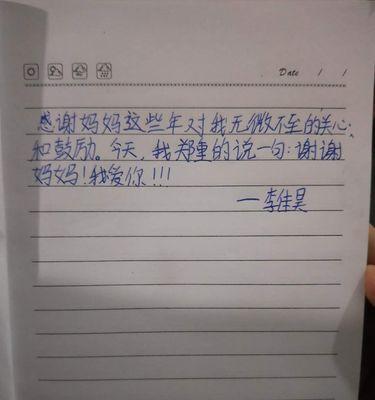 Date / /
感谢妈妈这些年对我无微不至的关心
和鼓励。今天，我郑重的说一句：谢谢
妈妈！我爱你！！！
—李佳昊